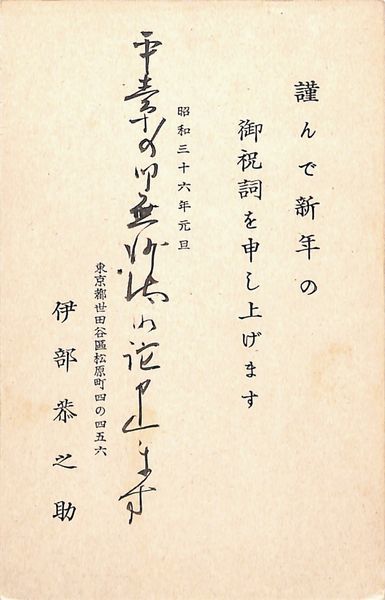 謹んで新年の
御祝詞を申し上げます
昭和三十六年元旦
平素の御無沙汰御詫申し上ます
東京都世田谷區松原町四の四五六
伊部恭之助